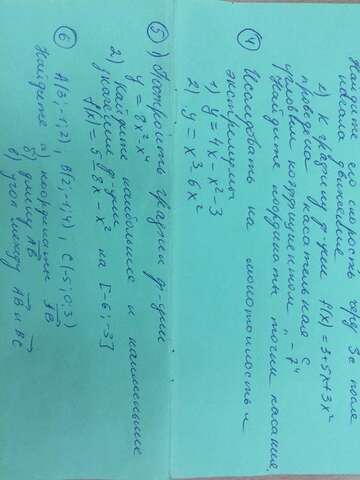 его скорость через 3с после
начала движения.
2) К графику ф-ции f(x) = 3-5x+3x²
проведена касательная с
угловым коэффициентом „-7“
Найдите координаты точки касания.
④ Исследовать на монотонность и
экстремумы
1) y = 4x-x²-3
2) y = x³-6x²
⑤ 1) Построить график ф-ции
y = 8x²-x⁴
2) Найдите наибольшее и наименьшее
значение ф-ции
f(x) = 5-8x-x² на [-6;-3]
⑥ A(3;-1;2), B(2;-1;4), C(-5;0;3)
Найдите а) координаты AB
б) длину AB
в) угол между AB и BC